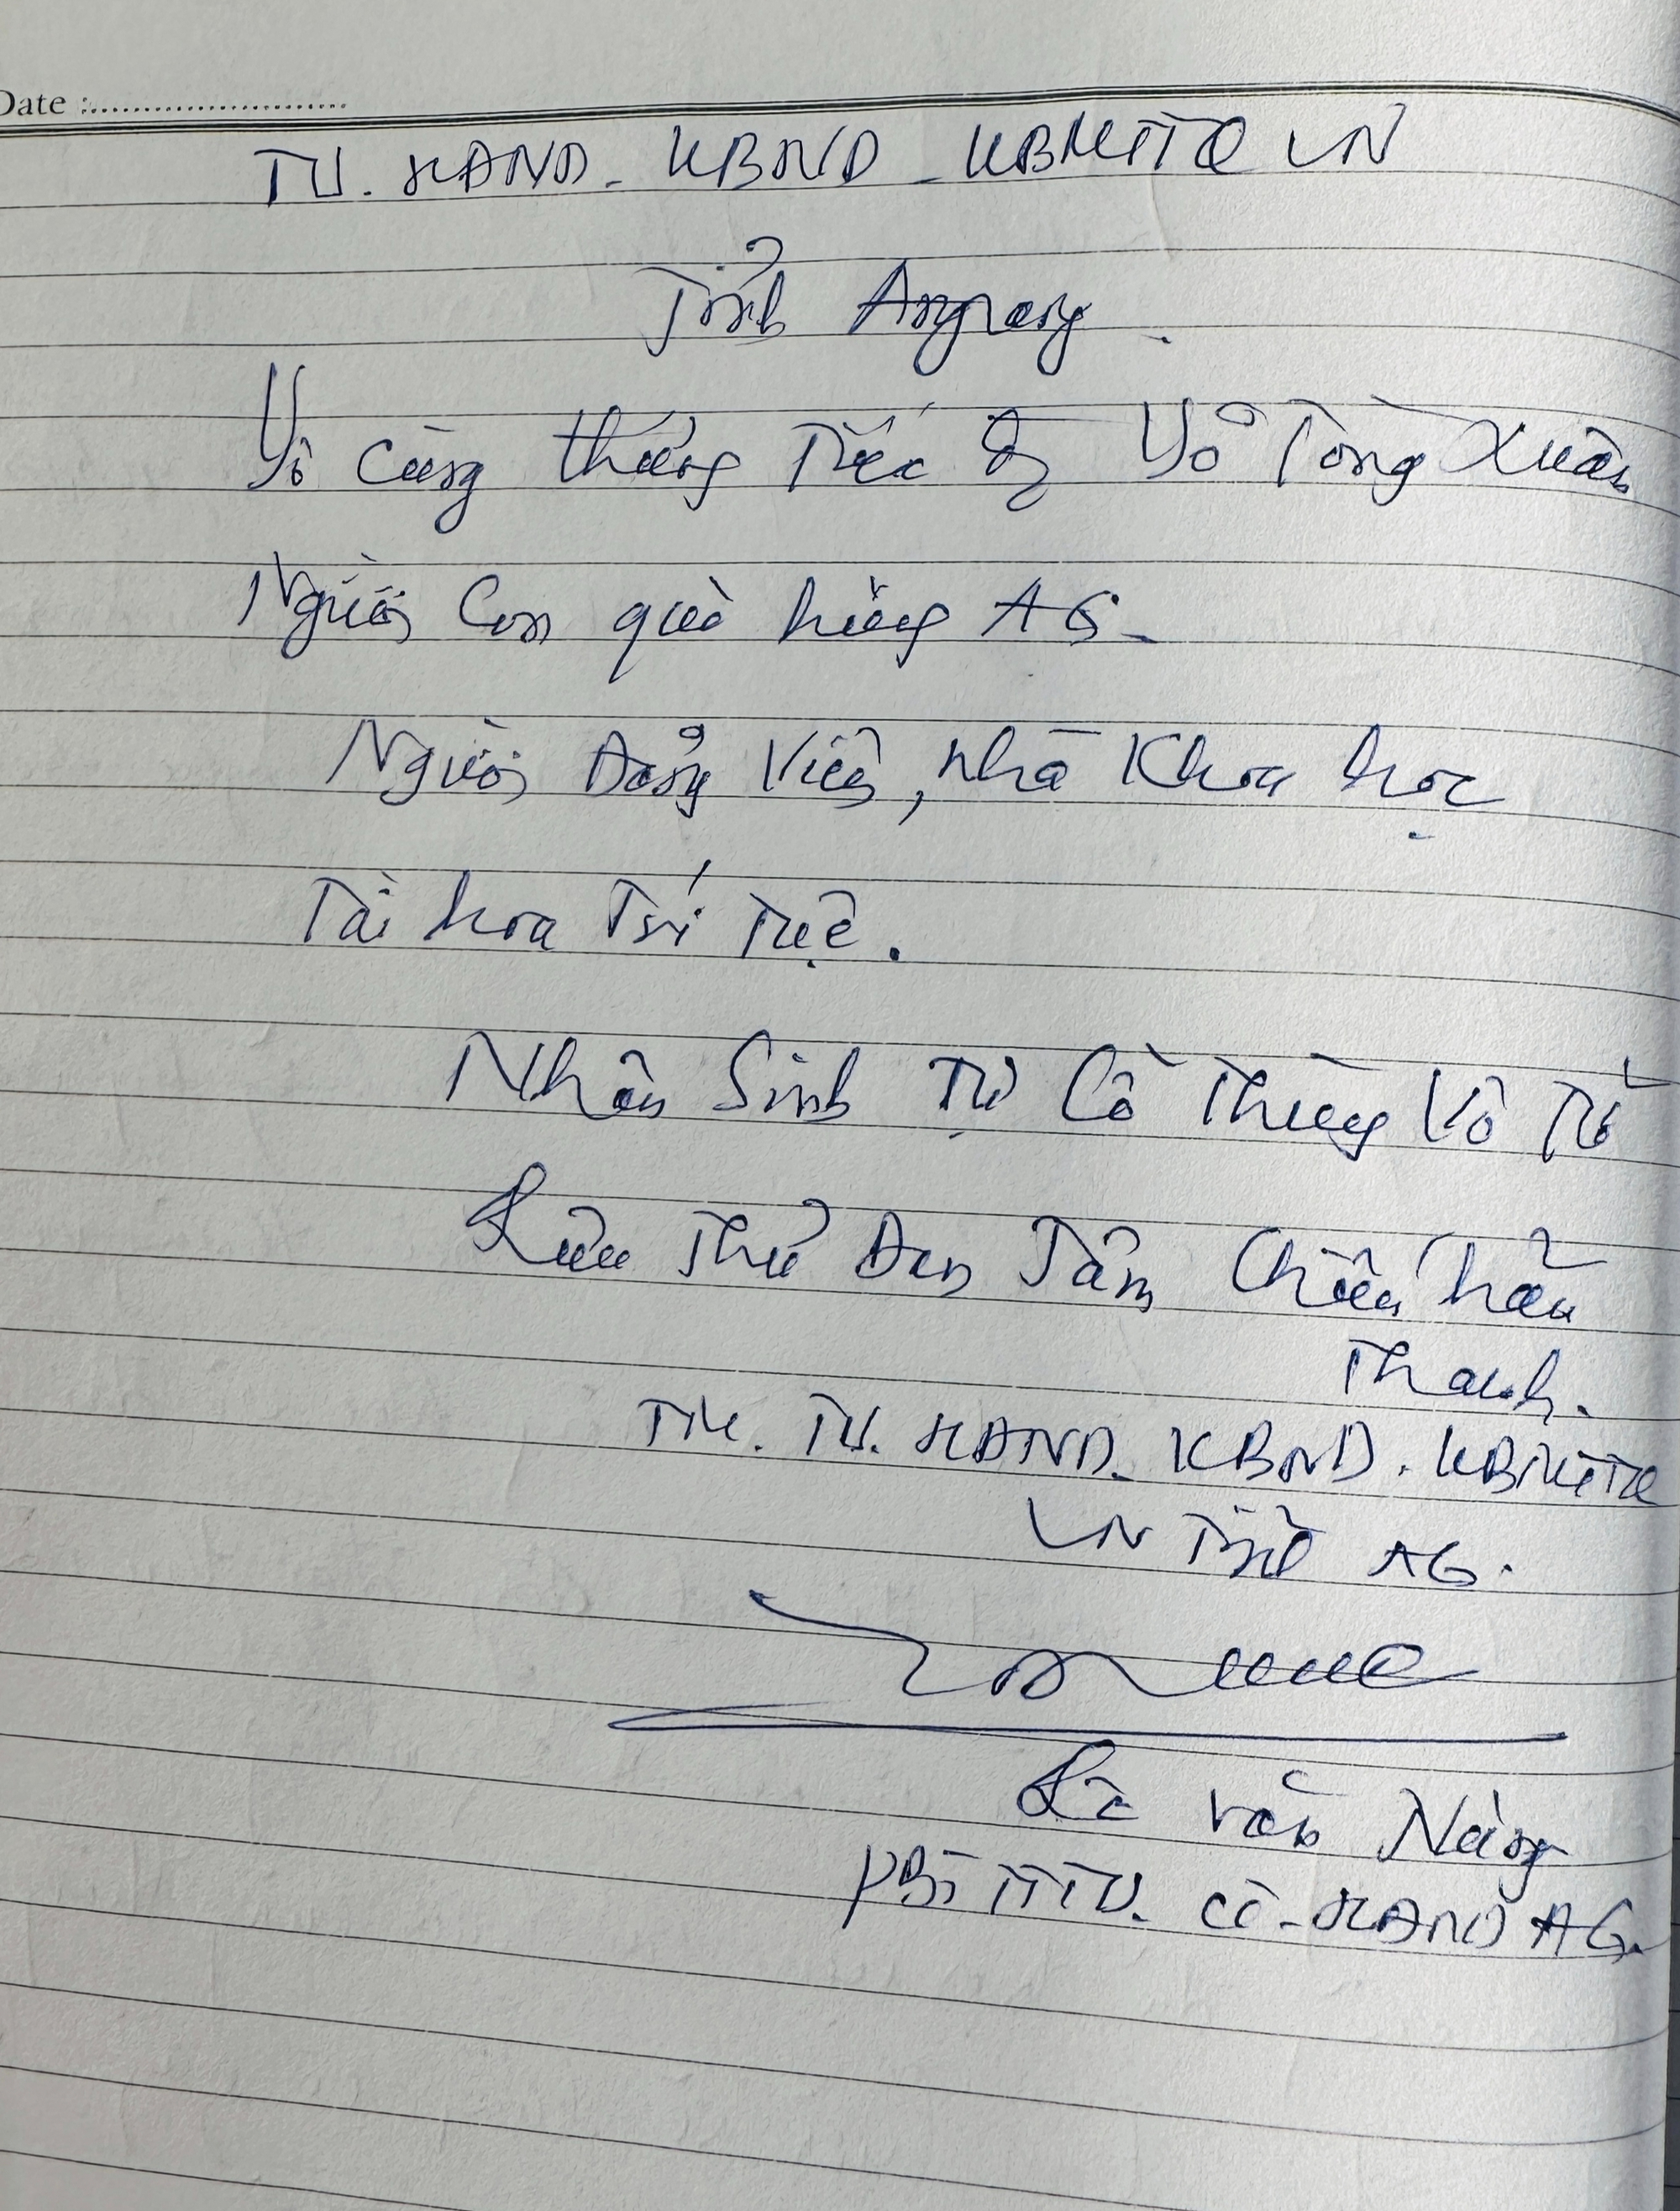 Date :........................
TU. HĐND - UBND - UBMTTQ VN
Tỉnh An giang.
Vô cùng thương Tiếc Ô Võ Tòng Xuân
Người Con quê hương AG -
Người Đảng Viên, nhà Khoa học
Tài hoa Trí Tuệ.
Nhân Sinh Tự Cổ Thùy Vô Tử
Lưu Thủ Đan Tâm Chiếu hãn
Thanh.
TM. TU. HĐND. UBND. UBMTTQ
VN Tỉnh AG.
Lê văn Nưng
PBT TTTU. CT - HĐND AG.